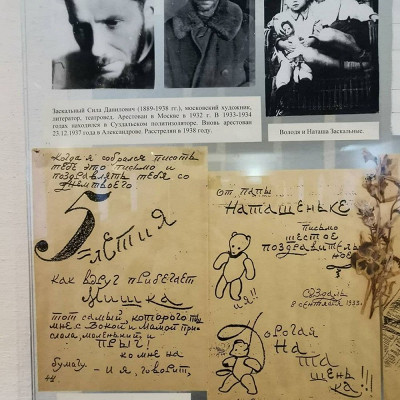 Заскальный Сила Данилович (1889-1938 гг.), московский художник,
литератор, театровед. Арестован в Москве в 1932 г. В 1933-1934
годах находился в Суздальском политизоляторе. Вновь арестован
23.12 1937 года в Александрове. Расстрелян в 1938 году.
Володя и Наташа Заскальные.
Когда я собрался писать
тебе это письмо и
поздравлять тебя со
днем твоего
5
-летия
как вдруг прибегает
Мишка
тот самый, которого ты
мне с Вовой и Мамой при-
слала, маленький, и
прыг!
ко мне на
бумагу.
- И я, говорит,
от папы
Наташеньке
письмо
шестое
поздравитель
ное
и я!!
Суздаль
8 сентября 1933г.
орогая
На
та
шень
ка!!!